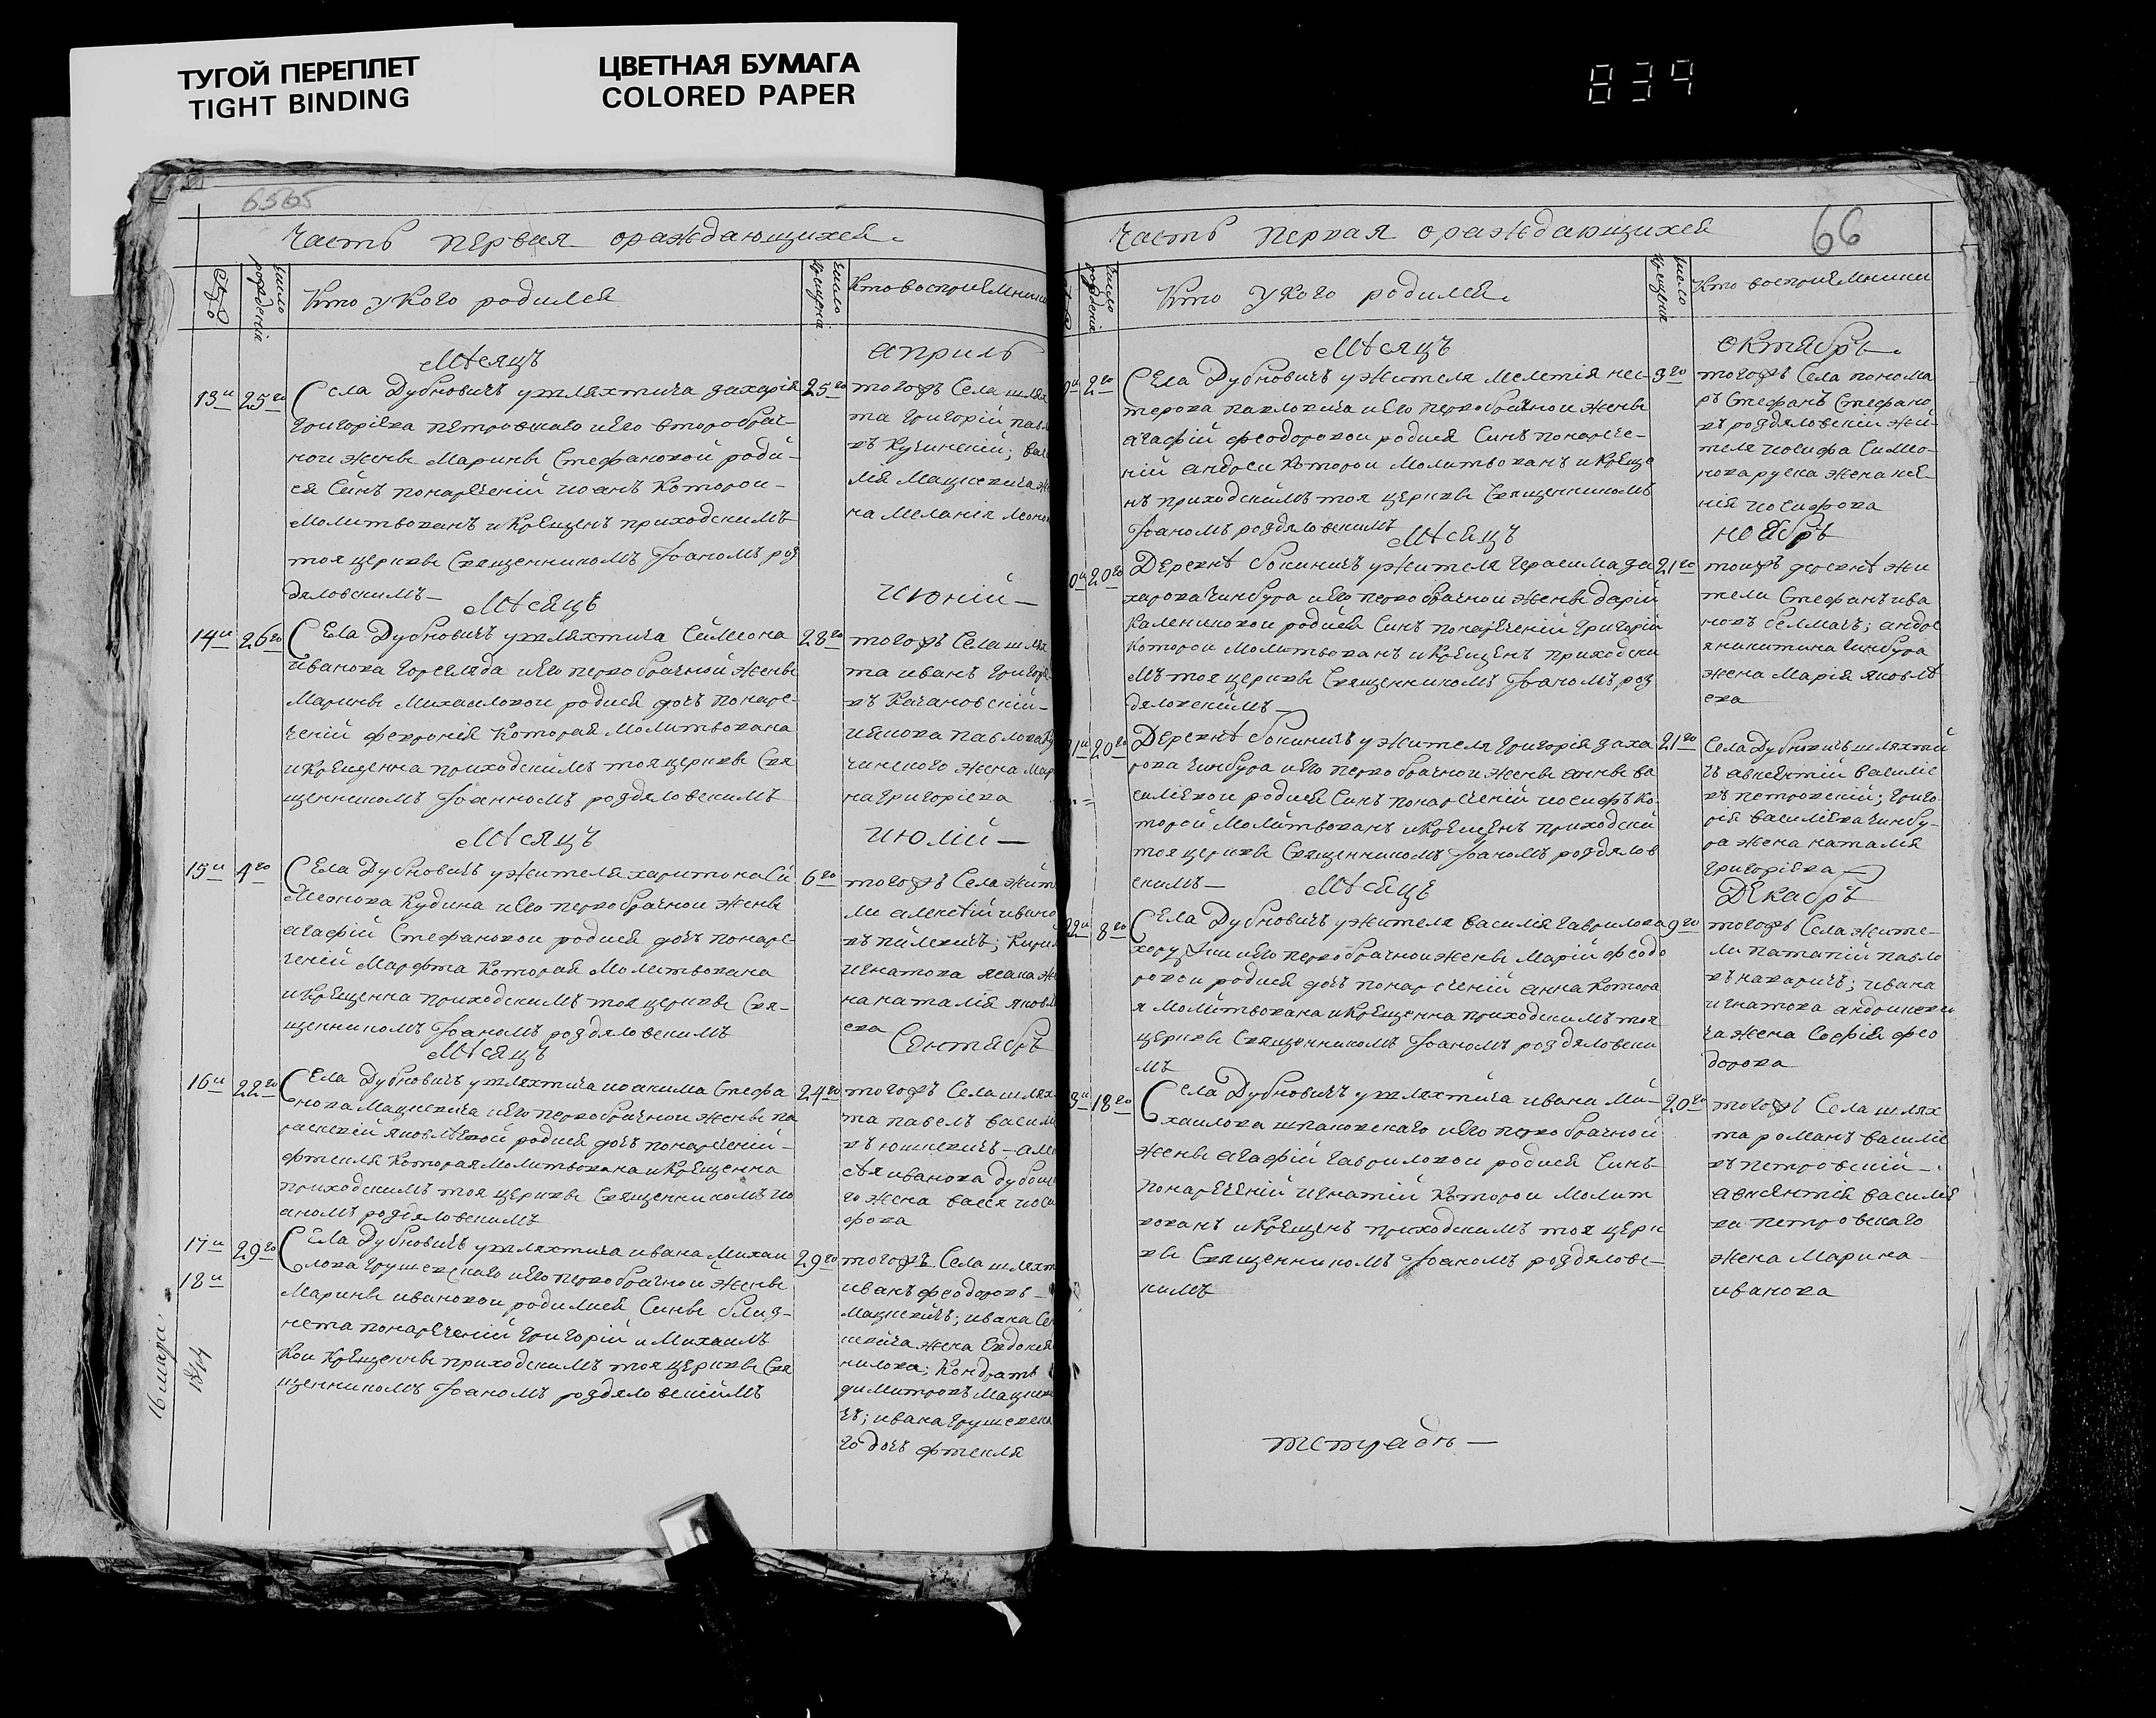 ТУГОЙ ПЕРЕПЛЕТ
TIGHT BINDING
ЦВЕТНАЯ БУМАГА
COLORED PAPER
839
6565
Часть первая ораждающихся.
число рождения
Кто укого родился
число крещения
Кто восприемники
Мѣсяцъ
априль
13й 25го
Села Дубновичъ ушляхтича захарія
григоріева петровскаго иего второбрач-
ной жены Марины Стефановой роди-
ся Синъ понаречений иоанъ которой
молитвованъ икрещенъ приходскимъ
тоя церкви Священникомъ Іоаномъ роз
дяловскимъ
25го
тогожъ Села шлях
та григорій пав
въ Кучинскій; васи
лія Мацкевича же
на Меланія леоно
Мѣсяцъ
июній
14й 26го
Села Дубновичъ ушляхтича Симеона
иванова горегляда иего первобрачной жены
Марины Михаиловой родися дочъ понаре-
ченій феврония которая молитвована
икрещенна приходскимъ тоя церкви Свя
щенникомъ Іоанномъ роздяловскимъ
28го
тогожъ Села шлях
та иванъ григорие
въ Качановскій
иякова павлова ку
чинского жена мар
на григоріева
Мѣсяцъ
июлій
15й 4го
Села Дубновичъ ужителя харитона Си
меонова Кудина иего первобрачной жены
агафій Стефановой родися дочъ понаре
ченій Марфта которая молитвована
икрещенна приходскимъ тоя церкви Свя-
щенникомъ Іоаномъ роздяловскимъ
6го
тогожъ Села жите
ли алексѣй ивано
въ пилевичъ; кирил
игнатова ясана же
на наталія яковл
ева
Мѣсяцъ
Сентябръ
16й 22го
Села Дубновичъ ушляхтича иоакима Стефа
нова Мацкевича иего первобрачной жены па
раскевій яковлѣвой родися дочъ понаречений
фтекля которая молитвована икрещенна
приходскимъ тоя церкви Священникомъ ио
аномъ роздяловскимъ
24го
тогожъ Села шлях-
та павелъ васили
въ юшкевичъ - але
сѣя иванова дубовс
го жена васся иоси
фова
17й 29го
18й
Села Дубновичъ ушляхтича ивана Михаи
лова грушевскаго иего первобрачной жены
Марины ивановой родилися Сины близ-
нета понаречений григорій и Михаилъ
кои крещенны приходскимъ тоя церкви Свя
щенникомъ Іоаномъ роздяловскимъ
29го
тогожъ Села шляхт
иванъ феодоровъ
мацкевичъ; ивана Се
шкевича жена Евдокия
нилова; кондратъ
димитровъ мацкеви
чъ; ивана грушевска
го дочъ фтекля
16 марта
Часть первая ораждающихся
66
число рождения
Кто укого родился.
число крещения
Кто восприемники
Мѣсяцъ
октябръ.
2го
Села Дубновичъ ужителя мелетія нес-
терова павловича иего первобрачной жены
агафій феодоровой родися Синъ понарече-
ній андрей которой молитвованъ икреще
нъ приходскимъ тоя церкви Священникомъ
Іоаномъ роздяловскимъ
3го
тогожъ Села понома
ръ Стефанъ Стефано
въ роздяловскій жи-
теля иосифа Симео-
нова руска жена ксе-
нія иосифова
Мѣсяцъ
ноябръ
20го
Деревнѣ бокиничъ ужителя герасима за
харова гинбура иего первобрачной жены дарій
калениковой родися Синъ понареченій григорій
которой молитвованъ икрещенъ приходски
мъ тоя церкви Священникомъ Іоаномъ роз
дяловскимъ
21го
тоижъ деревнѣ жи
тели Стефанъ ива
новъ белмачъ; андре
я никитина гинбура
жена марія яковлѣ
ева
20го
Деревнѣ бокиничъ ужителя григорія заха
рова гинбура иего первобрачной жены анны ва
силіевой родися Синъ понареченій иосифъ ко-
торой молитвованъ икрещенъ приходски
тоя церкви Священникомъ Іоаномъ роздялов
скимъ
21го
Села Дубновичъ шляхти
чъ авксентій василіе
въ петровскій; григо-
рія василіева гинбу-
ра жена наталія
григоріева
Мѣсяцъ
Декабръ
22й 8го
Села Дубновичъ ужителя василія гаврилова
иего первобрачной жены марій феодо
ровой родися дочъ понареченій анна котора
я молитвована икрещенна приходскимъ тоя
церкви Священникомъ Іоаномъ роздяловски
мъ
9го
тогожъ Села жите-
ли патапій павло
въ макаричъ; ивана
игнатова
жена Софія фео
дорова
18го
Села Дубновичъ ушляхтича ивана Ми-
хаилова шпаковскаго иего первобрачной
жены агафій гавриловой родися Синъ
понареченій игнатій которой молит
вованъ икрещенъ приходскимъ тоя церк
ви Священникомъ Іоаномъ роздяловс-
кимъ
20го
тогожъ Села шлях
та романъ василіе
въ петровскій
авксентія василіе
ва петровскаго
жена марина
иванова
тетрадь